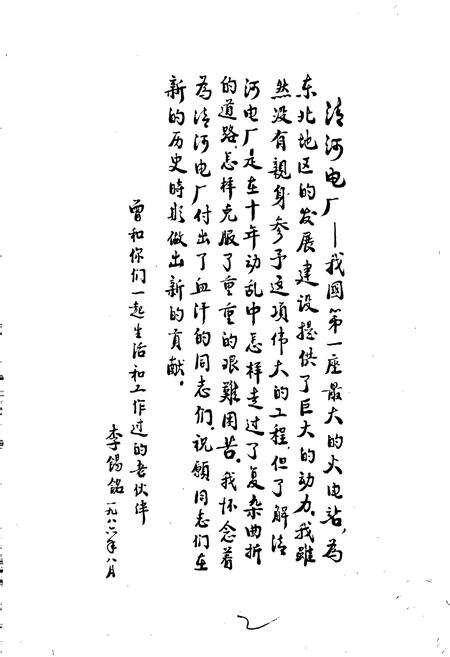 清河电厂——我國第一座最大的火电站，为
东北地区的发展建设提供了巨大的动力。我虽
然没有親身参予这项伟大的工程，但了解清
河电厂是在十年动乱中怎样走过了复杂曲折
的道路，怎样克服了重重的艰難困苦。我怀念着
为清河电厂付出了血汗的同志们，祝願同志们在
新的历史時期做出新的贡献。
曾和你们一起生活和工作过的老伙伴
李锡铭 一九八六年八月
2